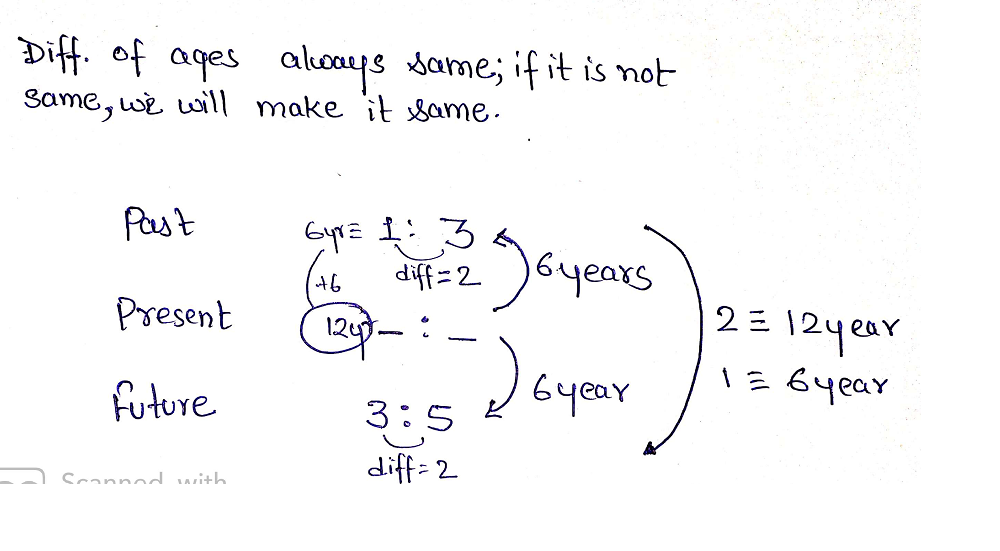 Diff. of ages always same; if it is not
same, we will make it same.
Past 6yr≡ 1 : 3
diff=2 6years
+6
Present 12yr _ : _ 2 ≡ 12year
6year 1 ≡ 6year
future 3 : 5
diff=2
Scanned with